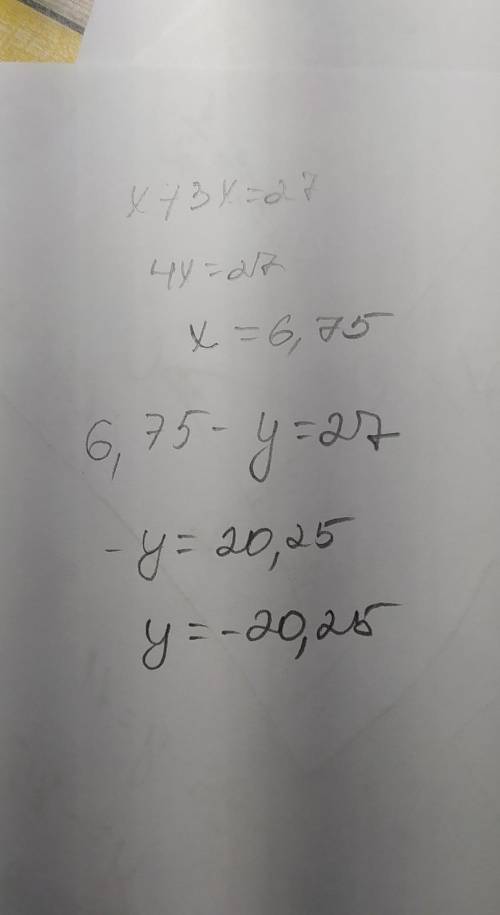 x+3x=27
4x=27
x=6,75
6,75-y=27
-y=20,25
y=-20,25